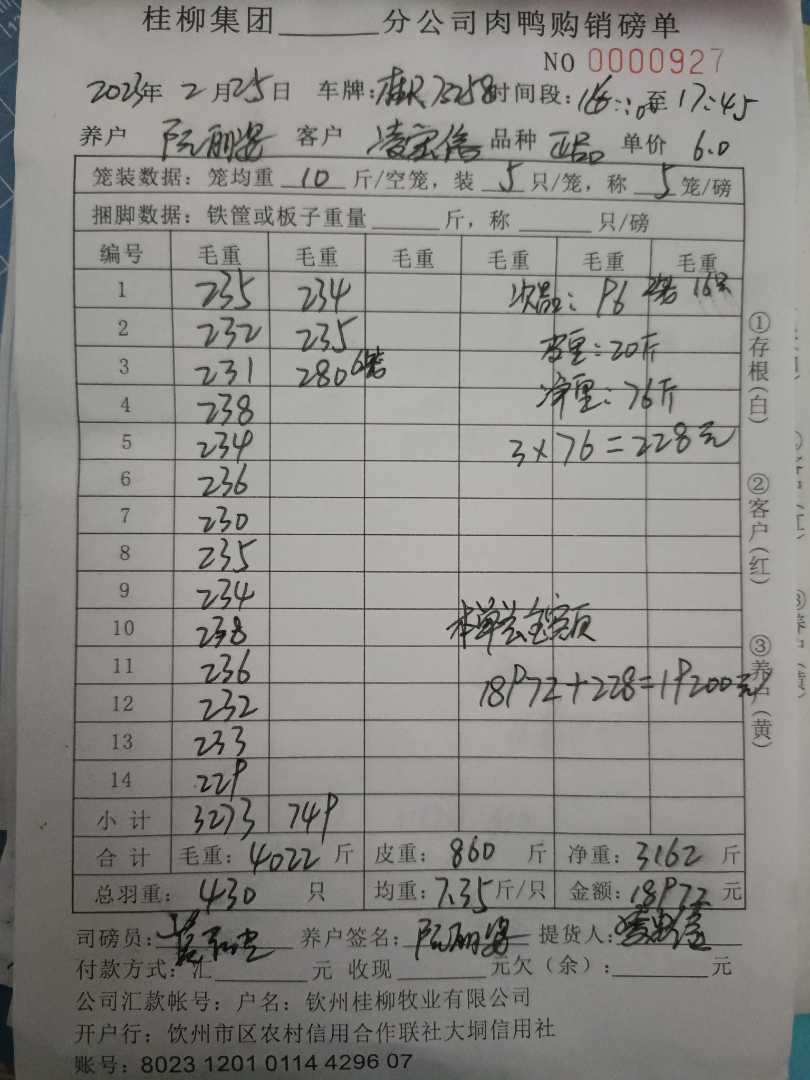 桂柳集团______分公司肉鸭购销磅单
NO 0000927
2023年 2月25日 车牌:桂R73258 时间段:16:20至17:45
养户 阮丽姿 客户 凌宗信 品种 正品 单价 6.0
笼装数据:笼均重 10 斤/空笼,装 5 只/笼,称 5 笼/磅
捆脚数据:铁筐或板子重量______斤,称______只/磅
编号 毛重 毛重 毛重 毛重 毛重 毛重
1 235 234 次品: 96 2笼 16只
2 232 235 皮重:20斤
3 231 280 6笼 净重:76斤
4 238
5 234 3×76=228元
6 236
7 230
8 235
9 234
10 238 本单总金额
11 236
12 232 18972+228=19200元
13 233
14 229
小计 3273 749
合计 毛重:4022斤 皮重:860斤 净重:3162斤
总羽重:430只 均重:7.35斤/只 金额:18972元
司磅员: 养户签名:阮丽姿 提货人:
付款方式:汇______元 收现______元欠(余):______元
公司汇款帐号:户名:钦州桂柳牧业有限公司
开户行:钦州市区农村信用合作联社大垌信用社
账号:8023 1201 0114 4296 07
①存根(白)
②客户(红)
③养户(黄)